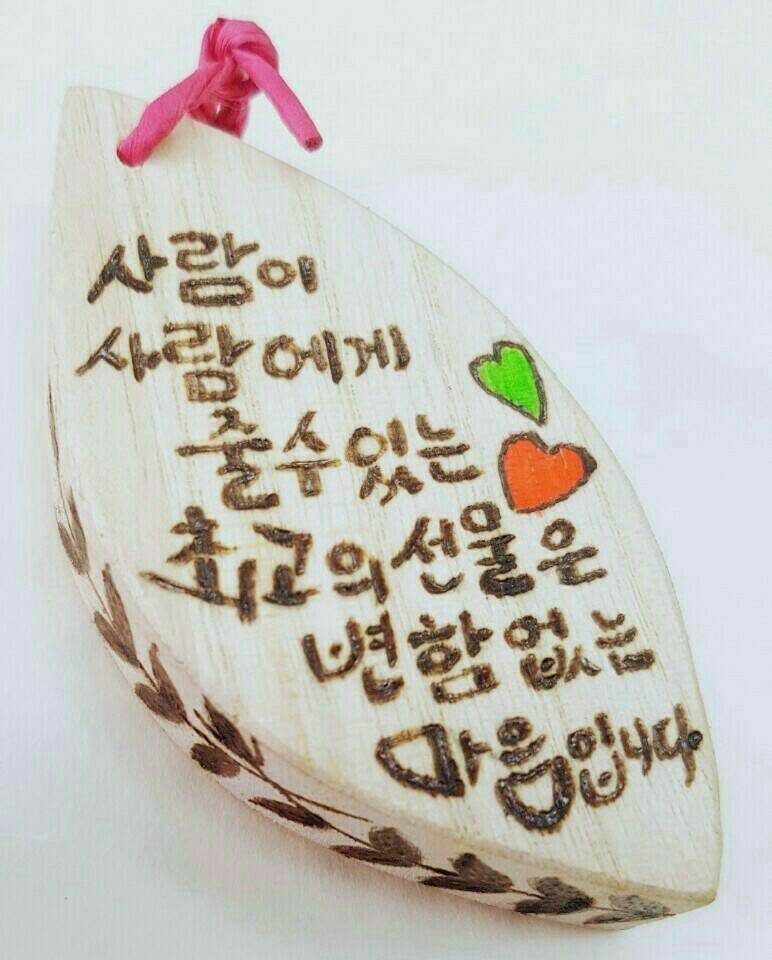 사람이
사람에게
줄수있는
최고의 선물은
변함없는
마음입니다